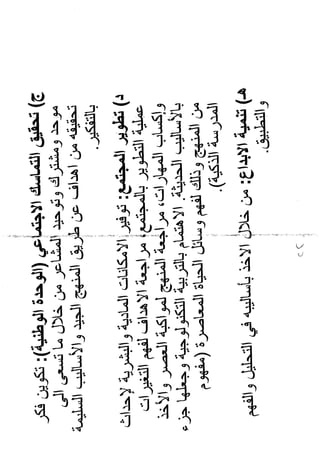 ج) تحقيق التماسك الاجتماعي (الوحدة الوطنية): تكوين فكر
موحد ومشترك وتوحيد المشاعر من خلال ما تسعى الى
تحقيقه من اهداف عن طريق المنهج الجيد والأساليب السليمة
بالتفكير.
د) تطوير المجتمع: توفير الامكانات المادية والبشرية لإحداث
عملية التطوير بالمجتمع، مراجعة الاهداف لفهم التغيرات
وإكساب المهارات، مراجعة المنهج لمواكبة العصر والأخذ
بالأساليب الحديثة. الاهتمام بالتربية التكنولوجية وجعلها جزء
من المنهج وذلك لفهم وسائل الحياة المعاصرة (مفهوم
المدرسة الذكية).
هـ) تنمية الابداع: من خلال الاخذ بأساليبه في التحليل والفهم
والتطبيق.
٢٢